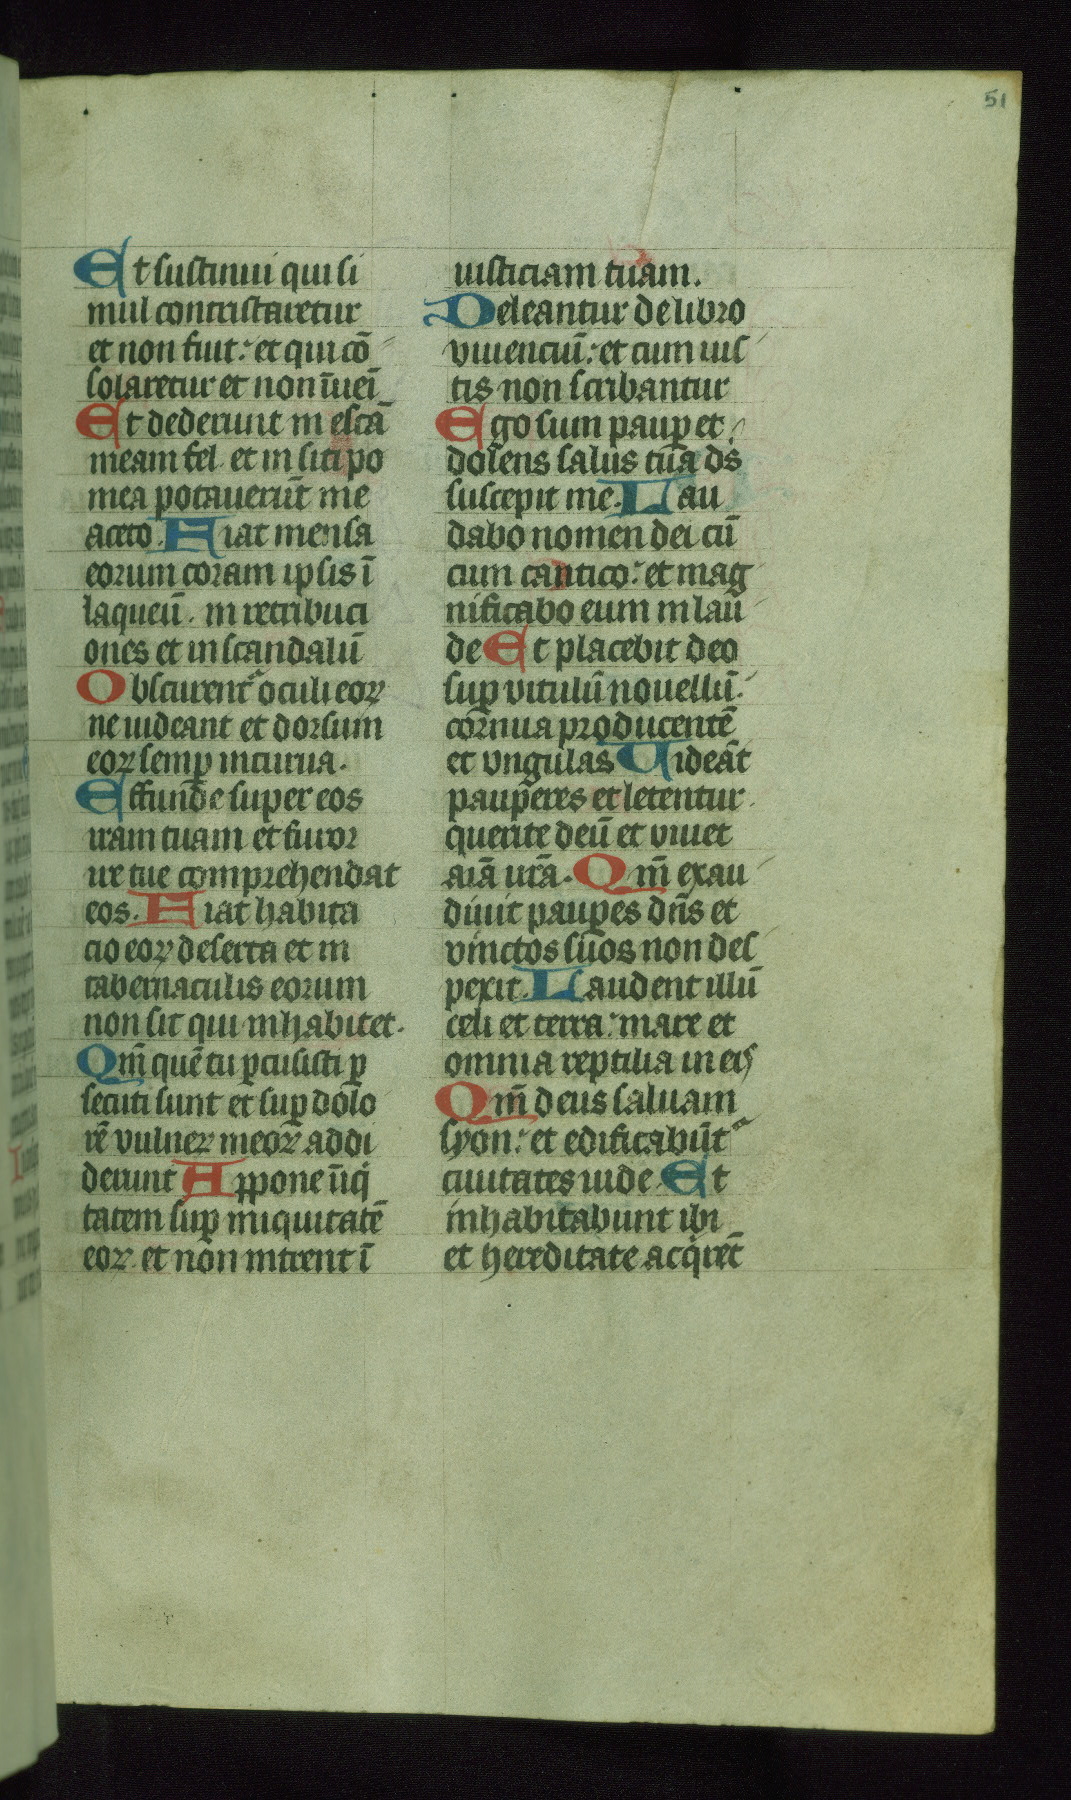 51
Et sustinui qui si
mul contristaretur
et non fuit: et qui cō
solaretur et non īueī
Et dederunt in escā
meam fel. et in siti po
mea potauerūt me
aceto. Fiat mensa
eorum coram ipsis ī
laqueū. in retribuci
ones et in scandalū
Obscurent᷑ oculi eoꝝ
ne uideant et dorsum
eoꝝ semꝑ incurua.
Effunde super eos
iram tuam et furor
ire tue comprehendat
eos. Fiat habita
cio eoꝝ deserta et in
tabernaculis eorum
non sit qui inhabitet.
Qm̄ quē tu ꝑcussisti ꝑ
secuti sunt et suꝑ dolo
rē vulneꝝ meoꝝ addi
derunt Appone īiq̇
tatem suꝑ iniquitatē
eoꝝ. et non intrent ī
iusticiam tuam.
Deleantur de libro
viuenciū: et cum ius
tis non scribantur
Ego sum pauꝑ et
dolens salus tua ds̄
suscepit me. Lau
dabo nomen dei cū
cum cantico: et mag
nificabo eum in lau
de Et placebit deo
suꝑ vitulū nouellū.
cornua producentē
et vngulas Uideāt
pauꝑeres et letentur.
querite deū et viuet
aīā ur̄a. Qm̄ exau
diuit pauꝑes dn̄s et
vinctos suos non des
pexit. Laudent illū
celi et terra: mare et
omnia reptilia in eis
Qm̄ deus saluam
syon: et edificabūt᷑
ciuitates iude. Et
inhabitabunt ibi
et hereditate acq̇rēt